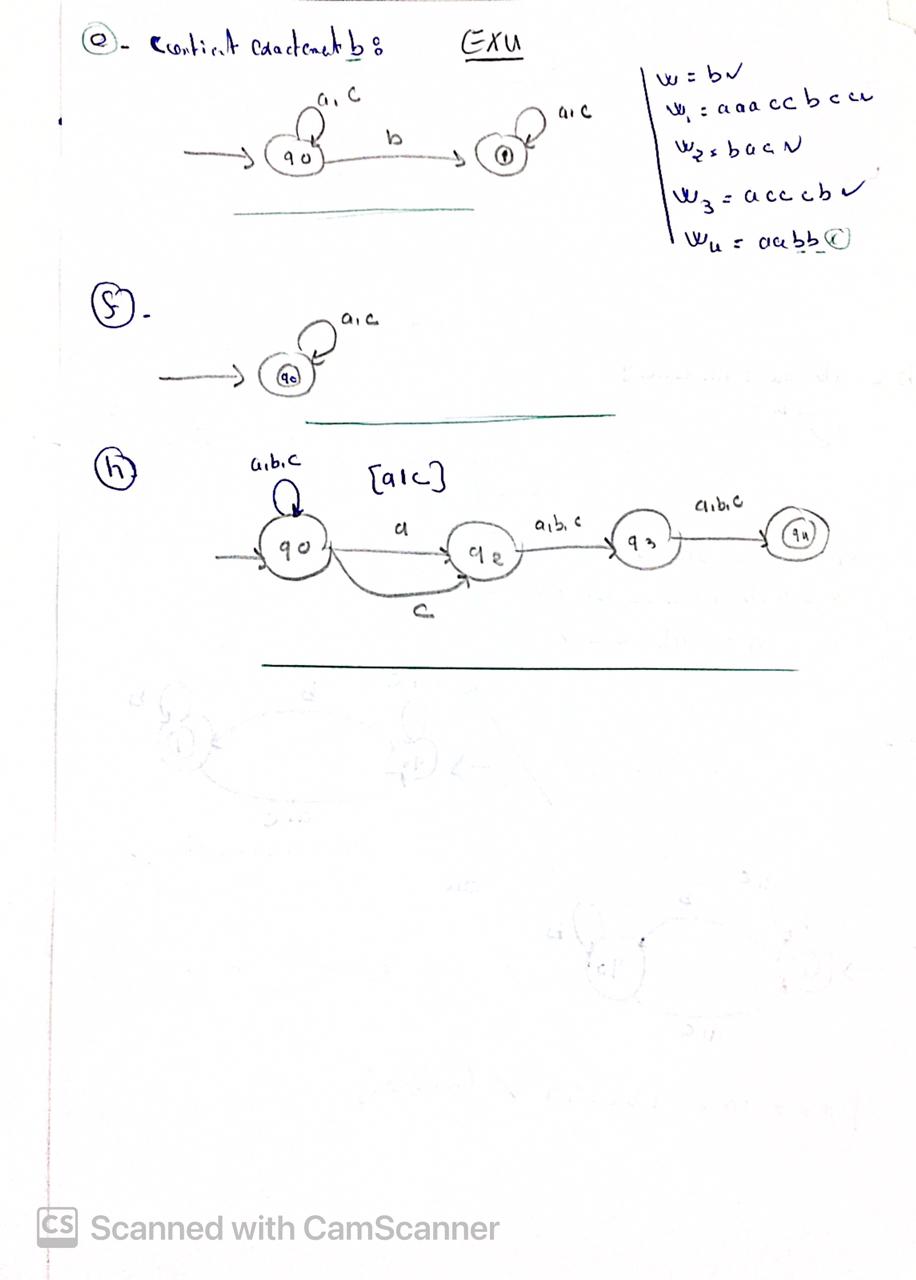 e - contient exactement b : EXU
a, c
a, c
q0
b
1
w = b ✓
w1 = aaa cc b c cc
w2 = baa ✓
w3 = a cc c b ✓
w4 = aa bb c
f -
a, c
q0
h
a, b, c [a | c]
q0
a
q2
a, b, c
q3
a, b, c
q4
c
CS Scanned with CamScanner